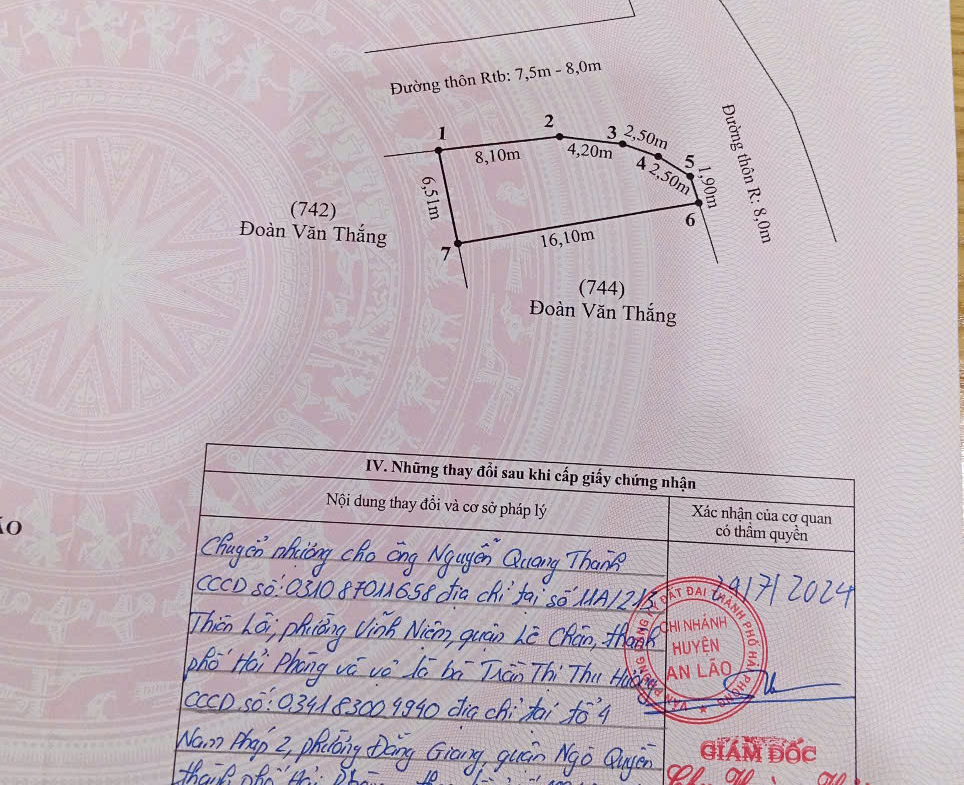 Đường thôn Rtb: 7,5m - 8,0m
1
2
3
2,50m
8,10m
4,20m
4
2,50m
5
1,90m
6
6,51m
7
16,10m
Đường thôn R: 8,0m
(742)
Đoàn Văn Thắng
(744)
Đoàn Văn Thắng
ÃO
IV. Những thay đổi sau khi cấp giấy chứng nhận
Nội dung thay đổi và cơ sở pháp lý
Xác nhận của cơ quan
có thẩm quyền
Chuyển nhượng cho ông Nguyễn Quang Thành
CCCD số: 031087011658 địa chỉ tại số 11A/215
Thiên Lôi, phường Vĩnh Niệm, quận Lê Chân, thành
phố Hải Phòng và vợ là bà Trần Thị Thu Hường
CCCD số: 034183009940 địa chỉ tại tổ 4
Nam Pháp 2, phường Đằng Giang, quận Ngô Quyền
thành phố Hải Phòng
29/7/2024
VĂN PHÒNG ĐĂNG KÝ ĐẤT ĐAI THÀNH PHỐ HẢI PHÒNG
CHI NHÁNH
HUYỆN
AN LÃO
GIÁM ĐỐC